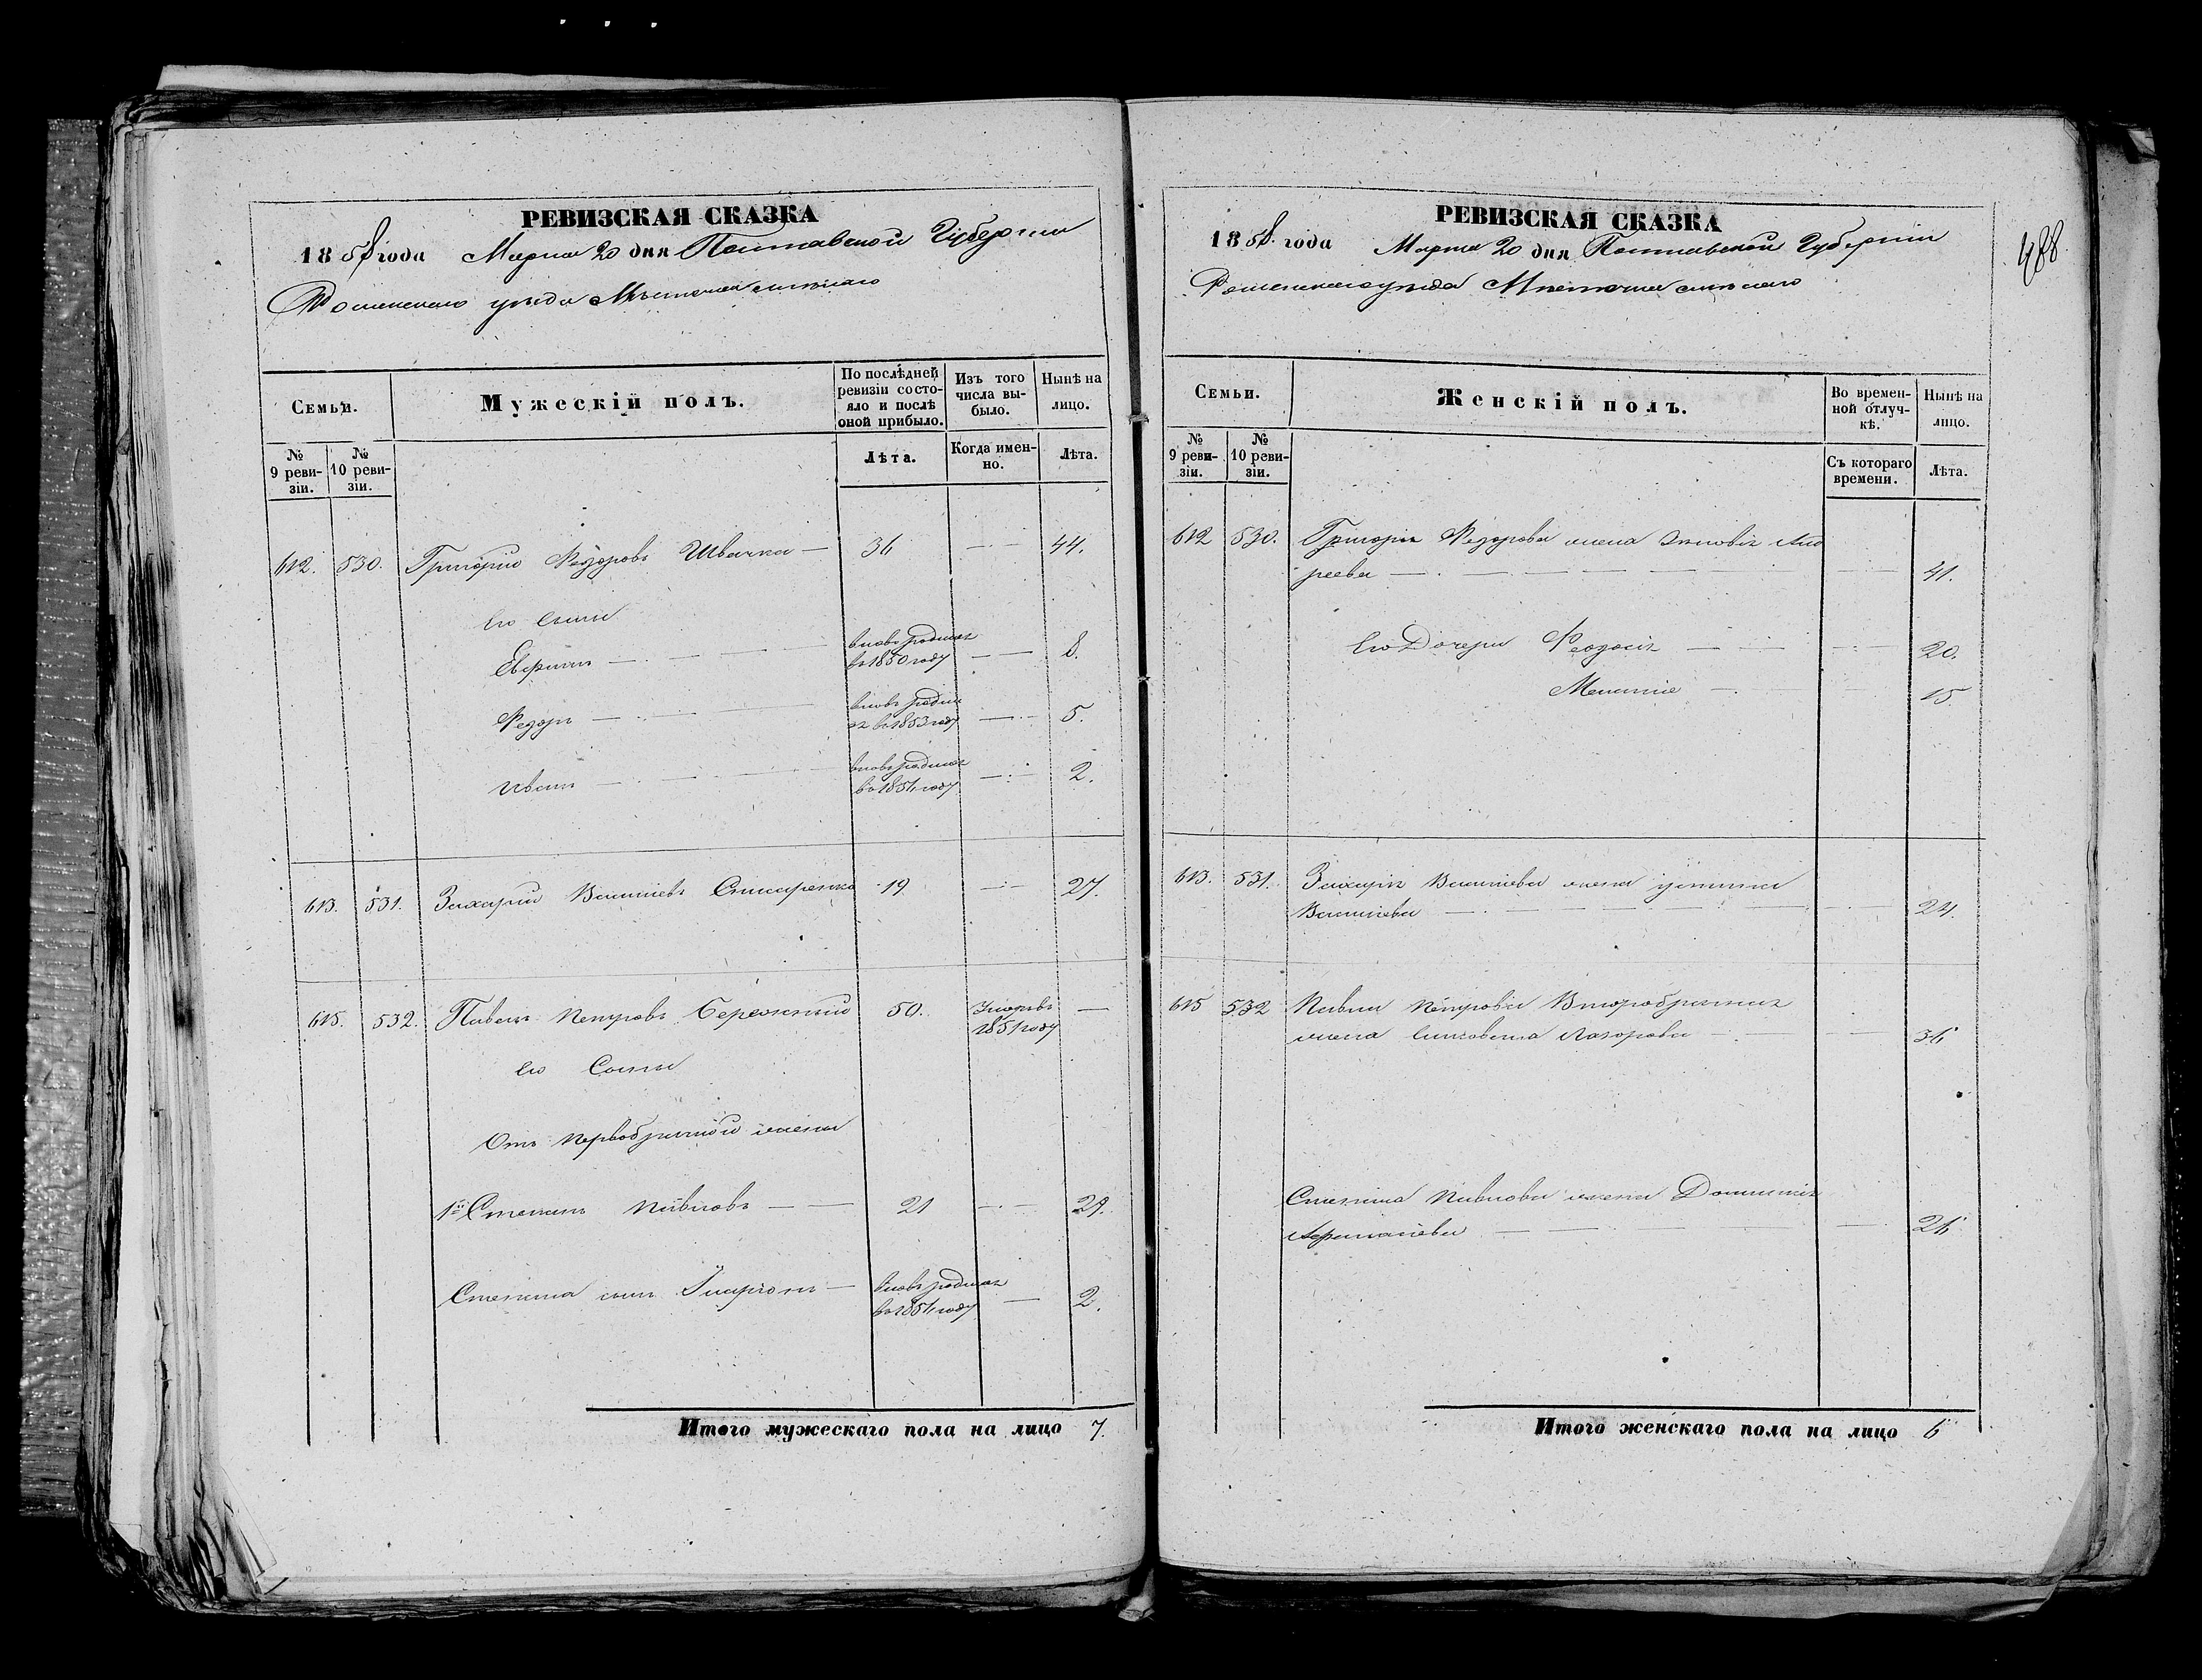 РЕВИЗСКАЯ СКАЗКА
1858 года Марта 20 дня Полтавской Губернии
Роменскаго уезда Местечка Смелаго
Семьи.
Мужескій полъ.
По послѣдней ревизіи состояло и послѣ оной прибыло.
Изъ того числа выбыло.
Нынѣ на лицо.
№ 9 ревизіи.
№ 10 ревизіи.
Лѣта.
Когда именно.
Лѣта.
612. 530. Григорій Федоровъ Швачка — 36 — 44.
Его сыны
Ефимъ — вновь родился
в 1850 году — 8.
Федоръ — вновь родил
ся в 1853 году — 5.
Иванъ — вновь родился
в 1856 году — 2.
613. 531. Захарий Васильевъ Слюсаренко 19 — 27.
615. 532. Павелъ Петровъ Бережный 50. Умеръ в
1851 году —
его Сыны
Отъ первобрачной жены
1й Степанъ Павловъ — 21 — 29.
Степана сынъ Иларіонъ — вновь родился
в 1856 году — 2.
Итого мужескаго пола на лицо 7.
488
РЕВИЗСКАЯ СКАЗКА
1858 года Марта 20 дня Полтавской Губерніи
Роменскаго уезда Местечка Смелаго
Семьи.
Женскій полъ.
Во временной отлучкѣ.
Нынѣ на лицо.
№ 9 ревизіи.
№ 10 ревизіи.
Съ котораго времени.
Лѣта.
612 530. Григория Федорова жена Зиновия Анд
реева — 41.
Его Дочери Феодосия — 20.
Мелания — 15.
613. 531. Захария Васильева жена Устинья
Васильева — 24.
615 532 Павла Петрова Второбрачная
жена Лазорова — 36
Степана Павлова жена Домникия
26
Итого женскаго пола на лицо 6